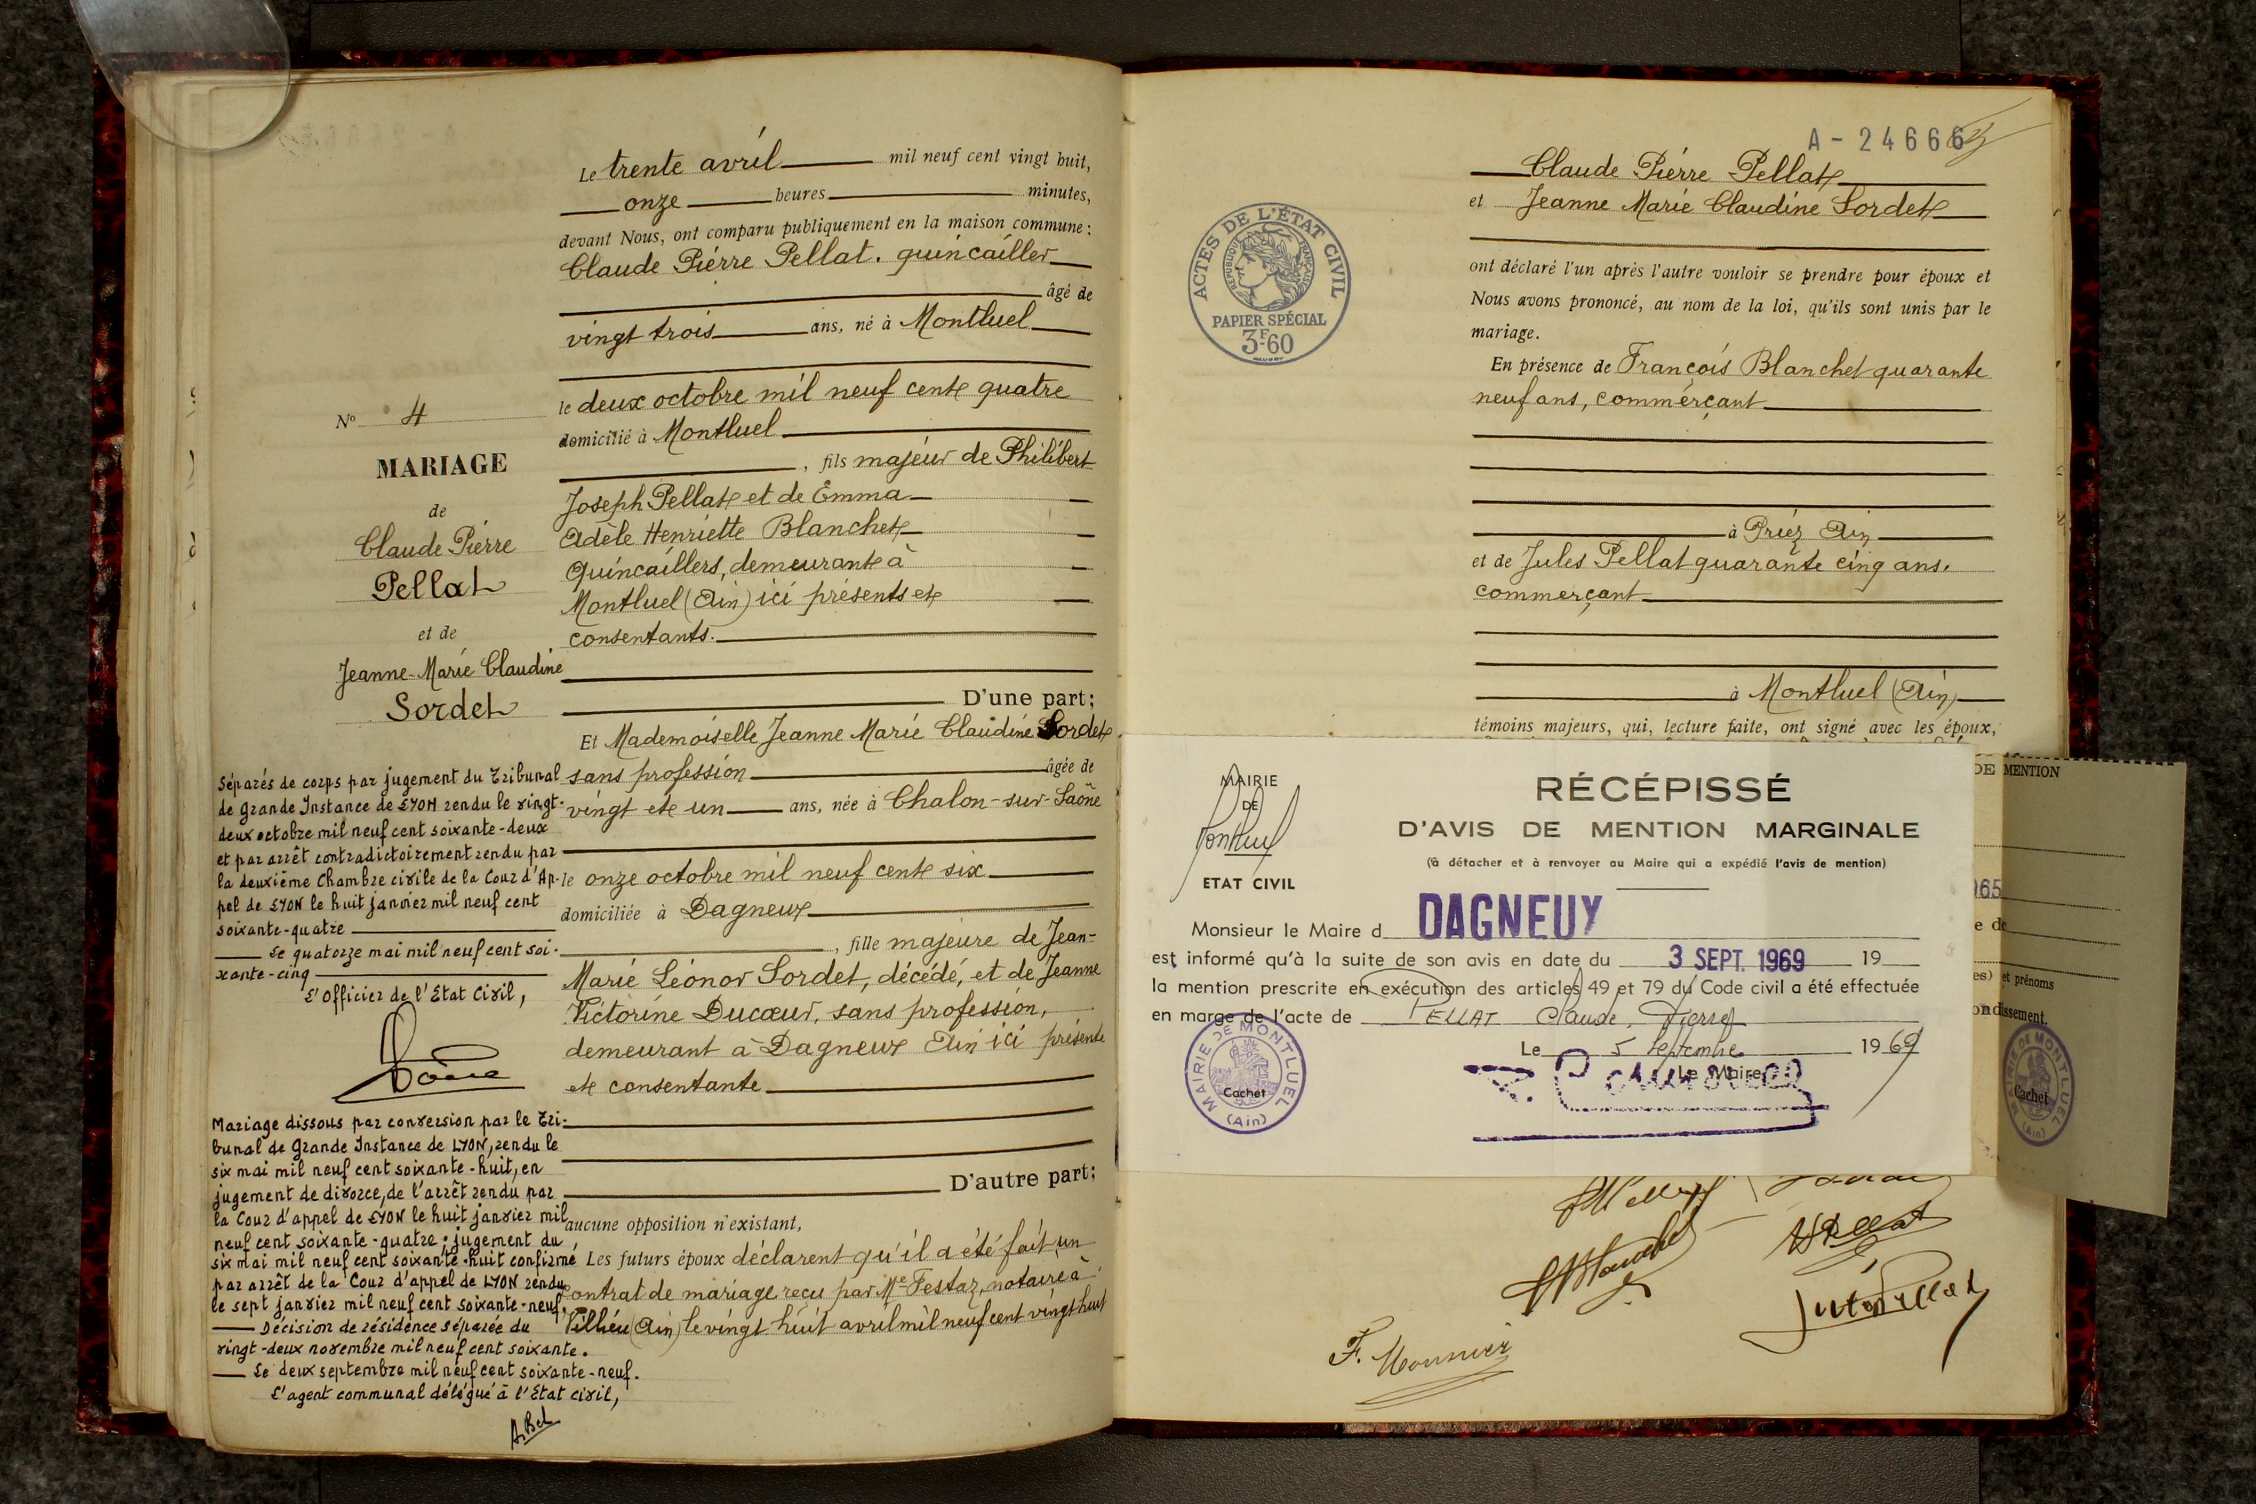 Le trente avril mil neuf cent vingt huit,
onze heures minutes,
devant Nous, ont comparu publiquement en la maison commune :
Claude Pierre Pellat. quincailler
âgé de
vingt trois ans, né à Montluel
le deux octobre mil neuf cent quatre
domicilié à Montluel
, fils majeur de Philibert
Joseph Pellat et de Emma
Adèle Henriette Blanchet
Quincaillers, demeurant à
Montluel (Ain) ici présents et
consentants.
D'une part;
Et Mademoiselle Jeanne Marie Claudine Sordet
sans profession âgée de
vingt et un ans, née à Chalon-sur-Saône
le onze octobre mil neuf cent six
domiciliée à Dagneux
, fille majeure de Jean-
Marie Léonor Sordet, décédé, et de Jeanne
Victorine Ducœur, sans profession,
demeurant à Dagneux Ain ici présente
et consentante
D'autre part;
aucune opposition n'existant,
Les futurs époux déclarent qu'il a été fait un
contrat de mariage reçu par Me Festaz, notaire à
Villieu (Ain) le vingt huit avril mil neuf cent vingt huit
No 4
MARIAGE
de
Claude Pierre
Pellat
et de
Jeanne-Marie Claudine
Sordet
Séparés de corps par jugement du Tribunal
de Grande Instance de LYON rendu le vingt-
deux octobre mil neuf cent soixante-deux
et par arrêt contradictoirement rendu par
la deuxième Chambre civile de la Cour d'Ap-
pel de LYON le huit janvier mil neuf cent
soixante-quatre
Le quatorze mai mil neuf cent soi-
xante-cinq
L'Officier de l'Etat Civil,
Mariage dissous par conversion par le Tri-
bunal de Grande Instance de LYON, rendu le
six mai mil neuf cent soixante-huit, en
jugement de divorce, de l'arrêt rendu par
la Cour d'appel de LYON le huit janvier mil
neuf cent soixante-quatre ; jugement du
six mai mil neuf cent soixante-huit confirmé
par arrêt de la Cour d'appel de LYON rendu
le sept janvier mil neuf cent soixante-neuf.
Décision de résidence séparée du
vingt-deux novembre mil neuf cent soixante.
Le deux septembre mil neuf cent soixante-neuf.
L'agent communal délégué à l'Etat civil,
A. Bel
A - 24666
ACTES DE L'ÉTAT CIVIL
REPUBLIQUE FRANÇAISE
PAPIER SPÉCIAL
3F60
Claude Pierre Pellat
et Jeanne Marie Claudine Sordet
ont déclaré l'un après l'autre vouloir se prendre pour époux et
Nous avons prononcé, au nom de la loi, qu'ils sont unis par le
mariage.
En présence de François Blanchet quarante
neuf ans, commerçant
à Priez Ain
et de Jules Pellat quarante cinq ans.
commerçant
à Montluel (Ain)
témoins majeurs, qui, lecture faite, ont signé avec les époux,
MAIRIE
DE
Montluel
ETAT CIVIL
RÉCÉPISSÉ
D'AVIS DE MENTION MARGINALE
(à détacher et à renvoyer au Maire qui a expédié l'avis de mention)
Monsieur le Maire d DAGNEUX
est informé qu'à la suite de son avis en date du 3 SEPT. 1969 19
la mention prescrite en exécution des articles 49 et 79 du Code civil a été effectuée
en marge de l'acte de PELLAT Claude, Pierre
Le 5 Septembre 1969
Le Maire
MAIRIE DE MONTLUEL
Cachet
(Ain)
DE MENTION
965
e de
es) et prénoms
ondissement.
MAIRIE DE MONTLUEL
Cachet
(Ain)
Jules Pellat
F. Mounier